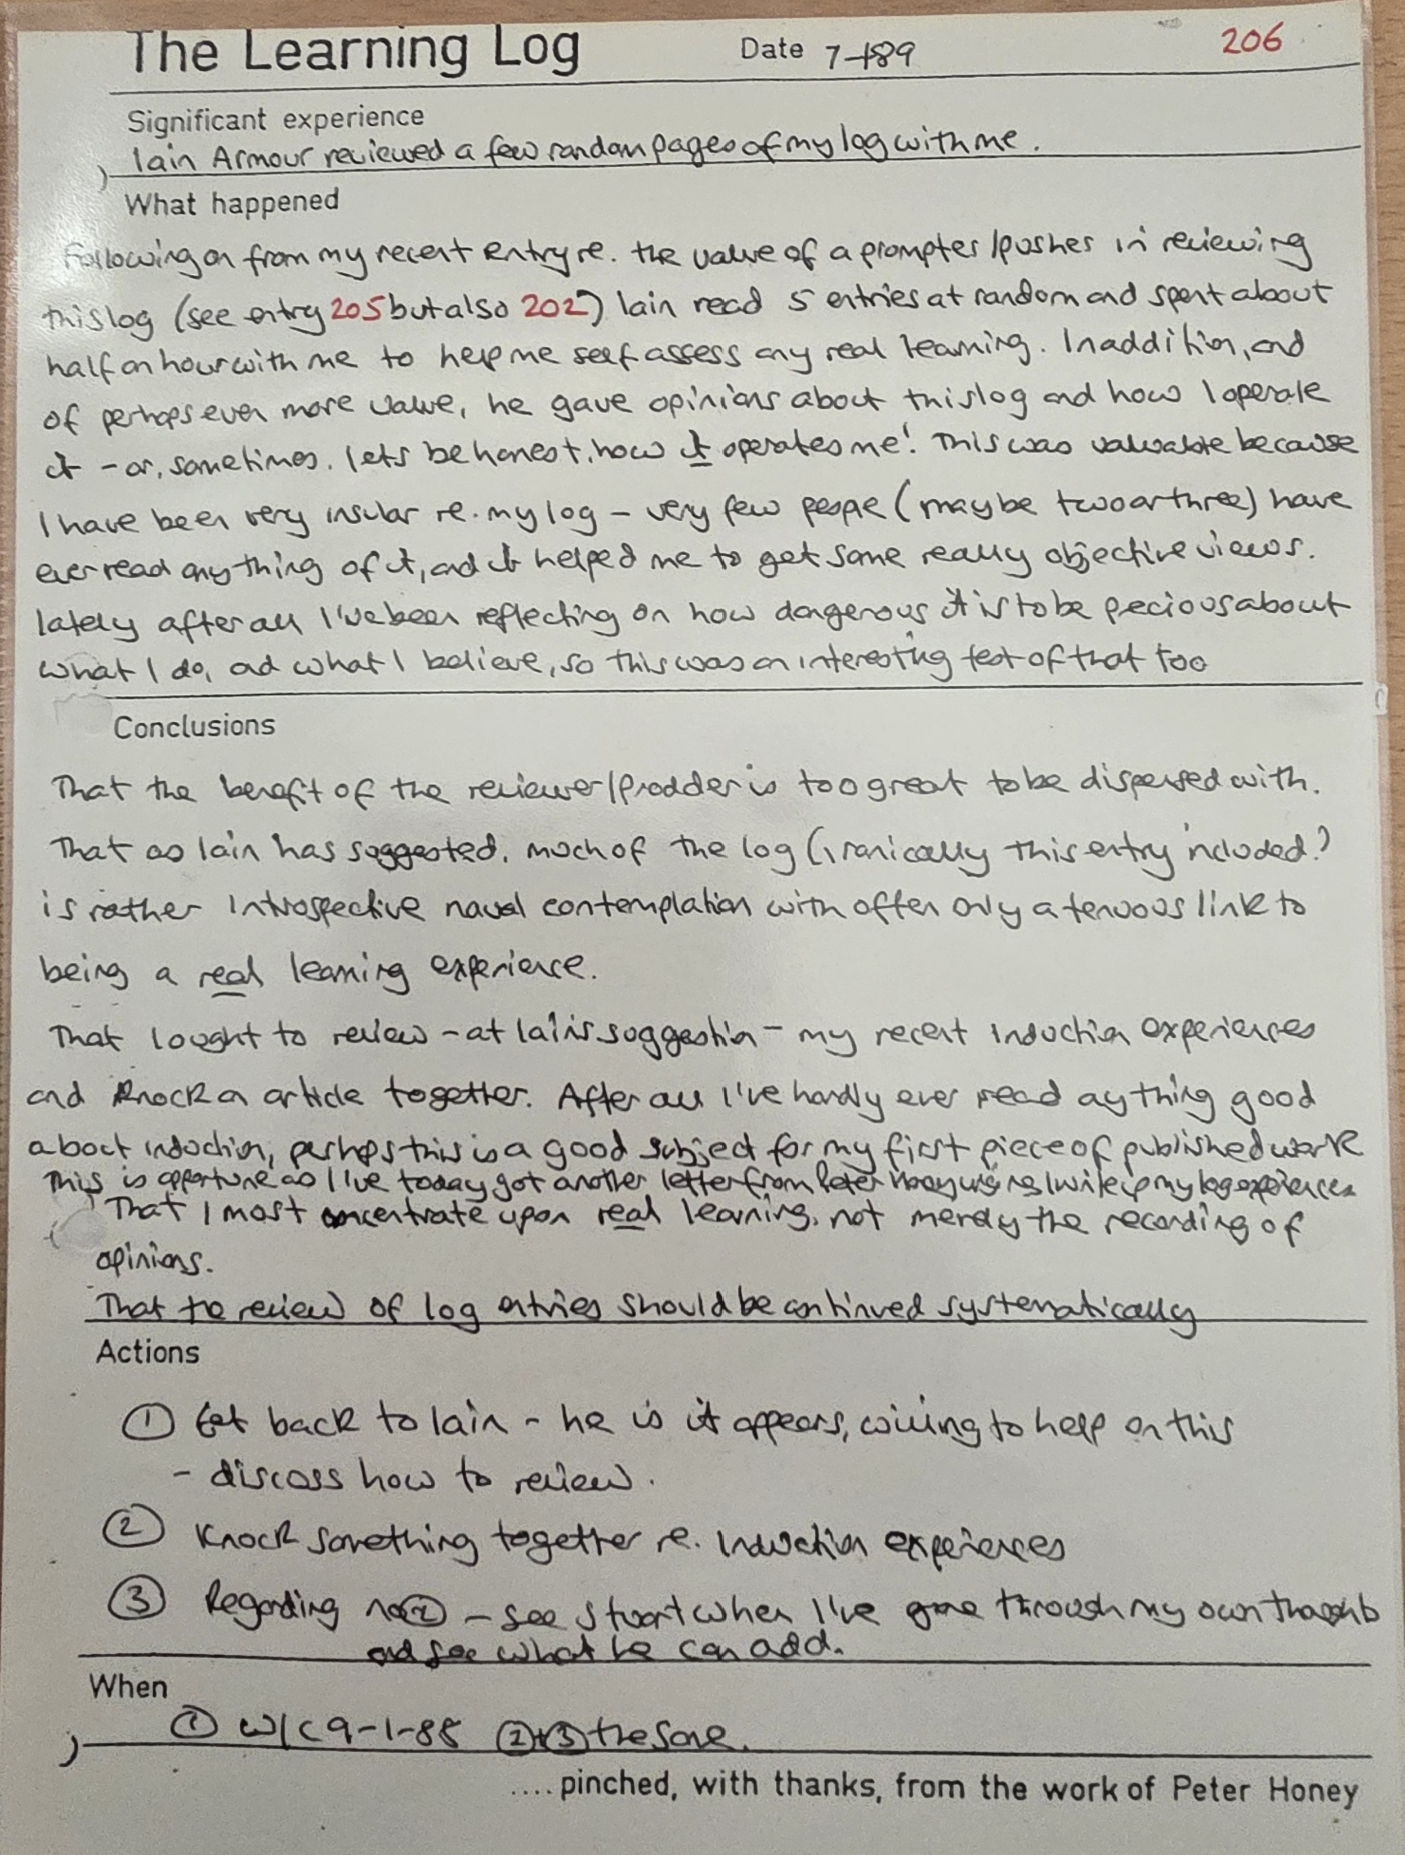 The Learning Log Date 7-1-89 206
Significant experience
Iain Armour reviewed a few random pages of my log with me.
What happened
Following on from my recent entry re. the value of a prompter/pusher in reviewing
this log (see entry 205 but also 202) Iain read 5 entries at random and spent about
half an hour with me to help me self assess any real learning. In addition, and
of perhaps even more value, he gave opinions about this log and how I operate
it - or, sometimes, lets be honest, how it operates me! This was valuable because
I have been very insular re. my log - very few people (maybe two or three) have
ever read anything of it, and it helped me to get some really objective views.
lately after all I've been reflecting on how dangerous it is to be pecious about
what I do, ad what I believe, so this was an interesting test of that too
Conclusions
That the benefit of the reviewer/prodder is too great to be dispensed with.
That as Iain has suggested, much of the log (ironically this entry included?)
is rather introspective naval contemplation with often only a tenuous link to
being a real learning experience.
That I ought to review - at Iain's suggestion - my recent induction experiences
and knock an article together. After all I've hardly ever read anything good
about induction, perhaps this is a good subject for my first piece of published work
This is opportune as I've today got another letter from Peter Honey urging me I write up my log experiences
That I must concentrate upon real learning, not merely the recording of
opinions.
That the review of log entries should be continued systematically
Actions
① Get back to Iain - he is it appears, willing to help on this
- discuss how to review.
② Knock something together re. Induction experiences
③ Regarding no ② - see Stuart when I've gone through my own thoughts
and see what he can add.
When
① W/C 9-1-88 ②+③ the same.
.... pinched, with thanks, from the work of Peter Honey